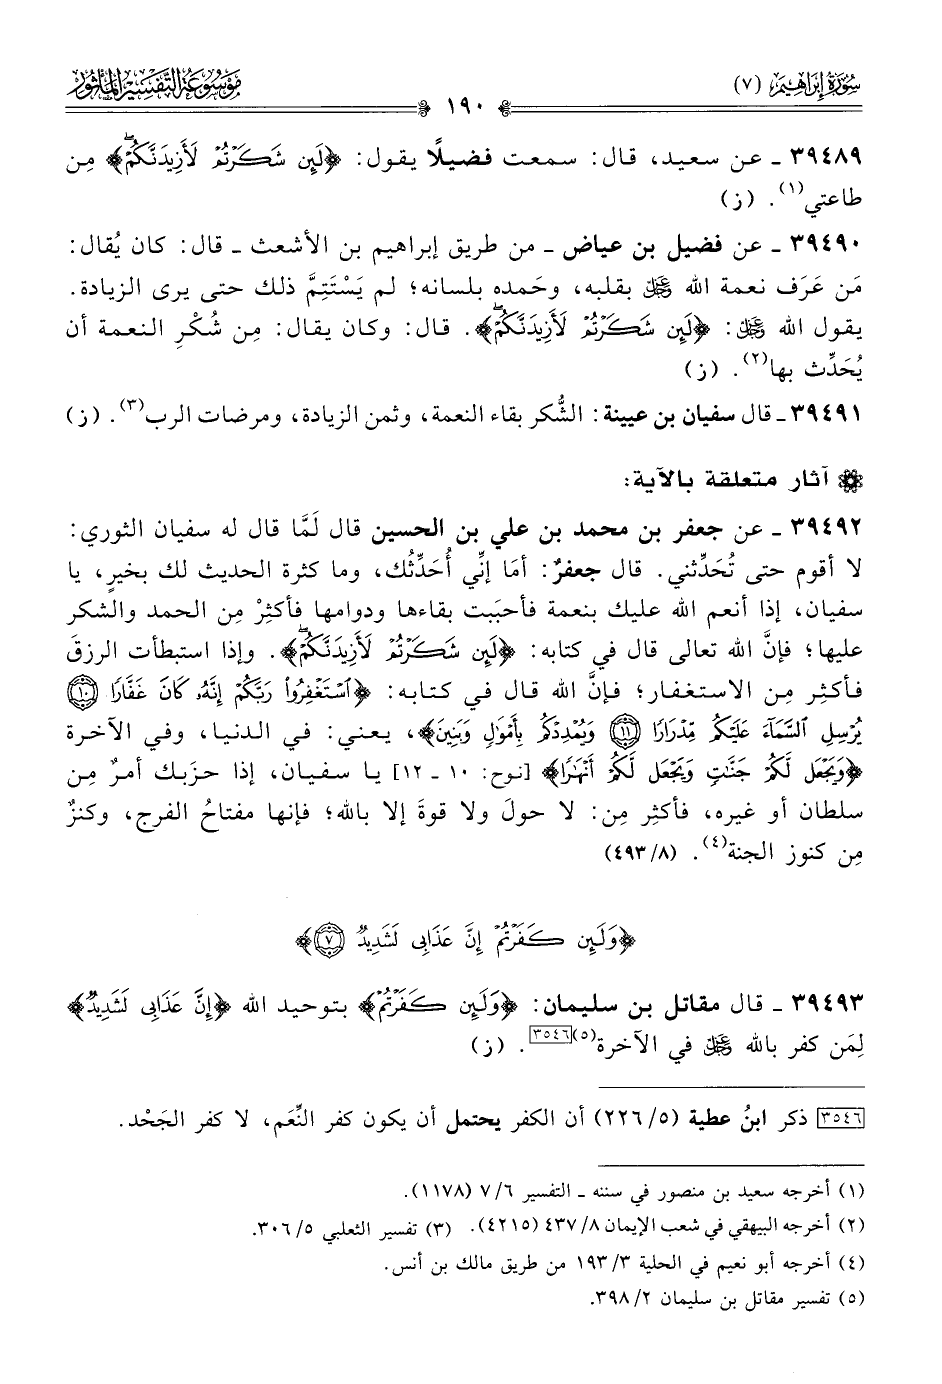 سورة إبراهيم (٧)
١٩٠
موسوعة التفسير المأثور
٣٩٤٨٩ ـ عن سعيد، قال: سمعت فضيلًا يقول: ﴿لَئِن شَكَرْتُمْ لَأَزِيدَنَّكُمْۖ﴾ مِن
طاعتي(١). (ز)
٣٩٤٩٠ ـ عن فضيل بن عياض ـ من طريق إبراهيم بن الأشعث ـ قال: كان يُقال:
مَن عَرَف نعمة الله ﷻ بقلبه، وحَمده بلسانه؛ لم يَسْتَتِمَّ ذلك حتى يرى الزيادة.
يقول الله ﷻ: ﴿لَئِن شَكَرْتُمْ لَأَزِيدَنَّكُمْۖ﴾. قال: وكان يقال: مِن شُكْرِ النعمة أن
يُحَدِّث بها(٢). (ز)
٣٩٤٩١ ـ قال سفيان بن عيينة: الشُّكر بقاء النعمة، وثمن الزيادة، ومرضات الرب(٣). (ز)
آثار متعلقة بالآية:
٣٩٤٩٢ ـ عن جعفر بن محمد بن علي بن الحسين قال لَمَّا قال له سفيان الثوري:
لا أقوم حتى تُحَدِّثني. قال جعفرٌ: أمَا إنِّي أُحَدِّثُك، وما كثرة الحديث لك بخيرٍ، يا
سفيان، إذا أنعم الله عليك بنعمة فأحبَبت بقاءها ودوامها فأكثِرْ مِن الحمد والشكر
عليها؛ فإنَّ الله تعالى قال في كتابه: ﴿لَئِن شَكَرْتُمْ لَأَزِيدَنَّكُمْۖ﴾. وإذا استبطأت الرزقَ
فأكثِر مِن الاستغفار؛ فإنَّ الله قال في كتابه: ﴿ٱسْتَغْفِرُوا۟ رَبَّكُمْ إِنَّهُۥ كَانَ غَفَّارًا ١٠
يُرْسِلِ ٱلسَّمَآءَ عَلَيْكُم مِّدْرَارًا ١١ وَيُمْدِدْكُم بِأَمْوَٰلٍ وَبَنِينَ﴾، يعني: في الدنيا، وفي الآخرة
﴿وَيَجْعَل لَّكُمْ جَنَّٰتٍ وَيَجْعَل لَّكُمْ أَنْهَٰرًا﴾ [نوح: ١٠ ـ ١٢] يا سفيان، إذا حزَبك أمرٌ مِن
سلطان أو غيره، فأكثِر مِن: لا حولَ ولا قوةَ إلا بالله؛ فإنها مفتاحُ الفرج، وكنزٌ
مِن كنوز الجنة(٤). (٤٩٣/٨)
﴿وَلَئِن كَفَرْتُمْ إِنَّ عَذَابِى لَشَدِيدٌ ٧﴾
٣٩٤٩٣ ـ قال مقاتل بن سليمان: ﴿وَلَئِن كَفَرْتُمْ﴾ بتوحيد الله ﴿إِنَّ عَذَابِى لَشَدِيدٌ﴾
لِمَن كفر بالله ﷻ في الآخرة(٥)[٣٥٤٦]. (ز)
[٣٥٤٦] ذكر ابنُ عطية (٢٢٦/٥) أن الكفر يحتمل أن يكون كفر النِّعَم، لا كفر الجَحْد.
(١) أخرجه سعيد بن منصور في سننه ـ التفسير ٧/٦ (١١٧٨).
(٢) أخرجه البيهقي في شعب الإيمان ٤٣٧/٨ (٤٢١٥). (٣) تفسير الثعلبي ٣٠٦/٥.
(٤) أخرجه أبو نعيم في الحلية ١٩٣/٣ من طريق مالك بن أنس.
(٥) تفسير مقاتل بن سليمان ٣٩٨/٢.